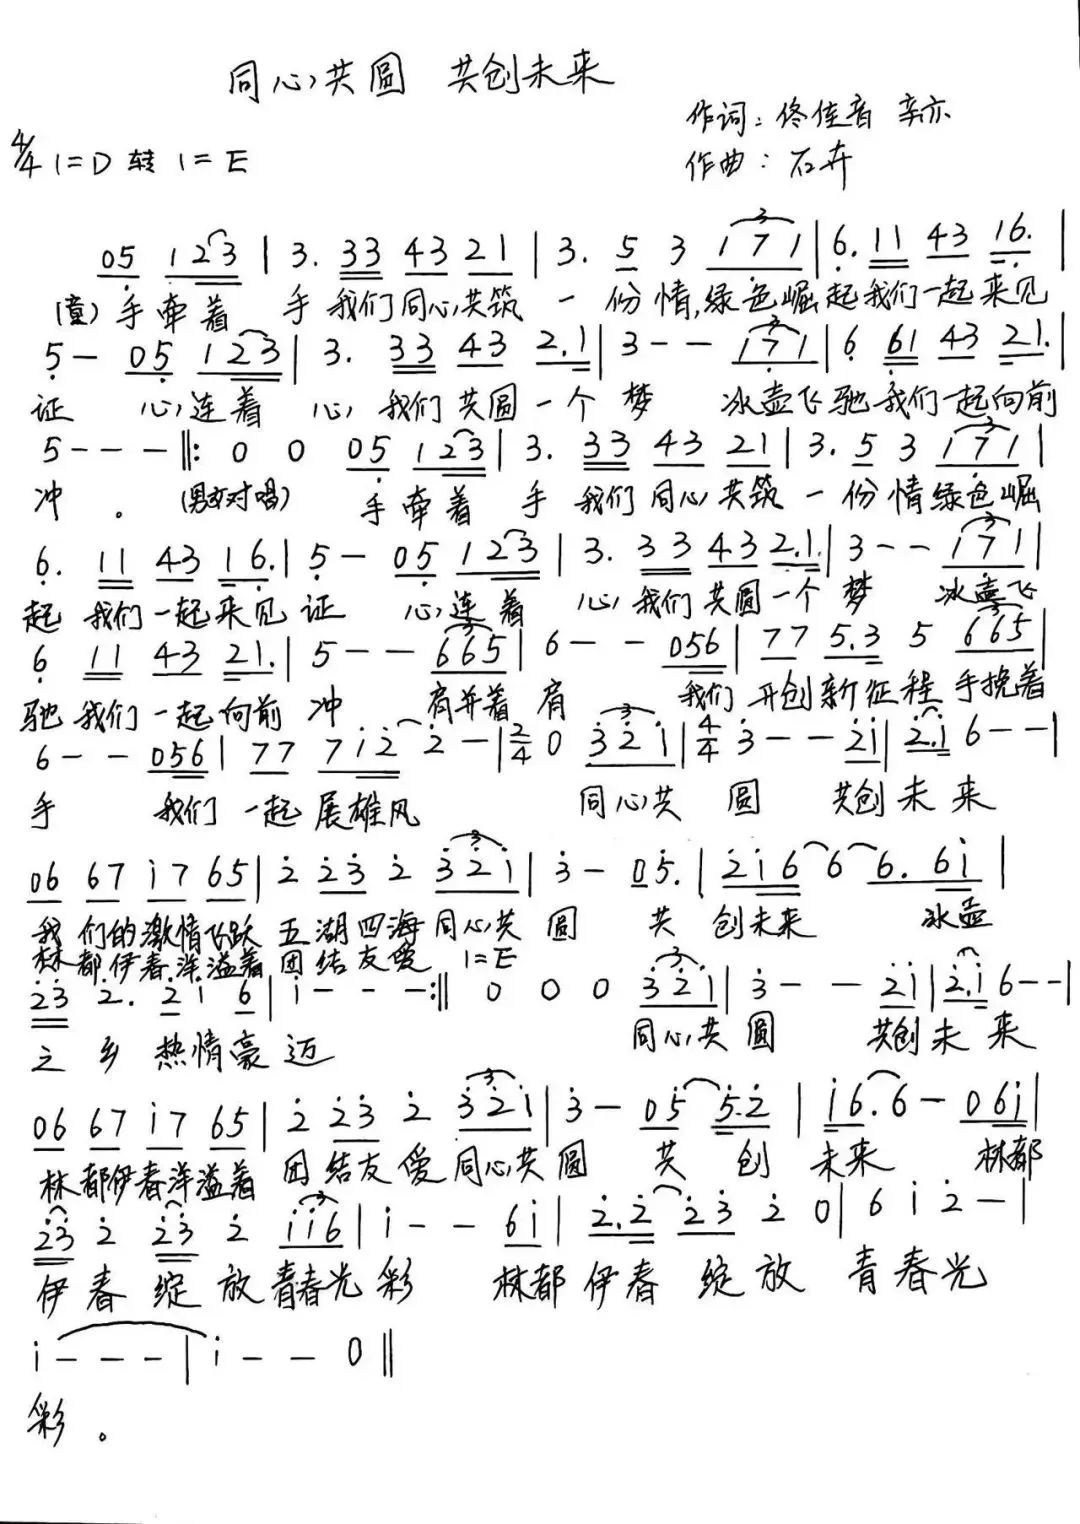 同心共圆 共创未来
作词：佟佳音 辛亦
4/4 1=D 转 1=E
作曲：石卉
05 123 | 3. 33 43 21 | 3. 5 3 171 | 6. 11 43 16. |
(童) 手牵着 手 我们同心共筑 一 份情,绿色崛起我们一起来见
5 - 05 123 | 3. 33 43 2.1 | 3 - - 171 | 6 61 43 21. |
证 心连着 心 我们共圆一个梦 冰壶飞驰我们一起向前
5 - - - ‖: 0 0 05 123 | 3. 33 43 21 | 3. 5 3 171 |
冲。 (男女对唱) 手牵着 手 我们同心共筑 一份情绿色崛
6. 11 43 16. | 5 - 05 123 | 3. 33 43 2.1. | 3 - - 171 |
起 我们一起来见证 心连着 心我们共圆一个梦 冰壶飞
6 11 43 21. | 5 - - 665 | 6 - - 056 | 77 5.3 5 665 |
驰我们一起向前 冲 肩并着 肩 我们开创新征程 手挽着
6 - - 056 | 77 7i2 2 - | 2/4 0 32i | 4/4 3 - - 2i | 2.i 6 - - |
手 我们 一起展雄风 同心共 圆 共创未来
06 67 i7 65 | 2 23 2 32i | 3 - 05. | 2i6 6 6. 6i |
我们的激情飞跃 五湖四海同心共 圆 共 创未来 冰壶
林都伊春洋溢着 团结友爱 1=E
23 2. 2i 6 | i - - - :‖ 0 0 0 32i | 3 - - 2i | 2.i 6 - - |
之乡 热情豪迈 同心共圆 共创未来
06 67 i7 65 | 2 23 2 32i | 3 - 05 5.2 | i6. 6 - 06i |
林都伊春洋溢着 团结友爱同心共圆 共 创 未来 林都
23 2 23 2 ii6 | i - - 6i | 2.2 23 2 0 | 6 i 2 - |
伊春绽放青春光彩 林都伊春 绽放 青春光
i - - - | i - - 0 ‖
彩。